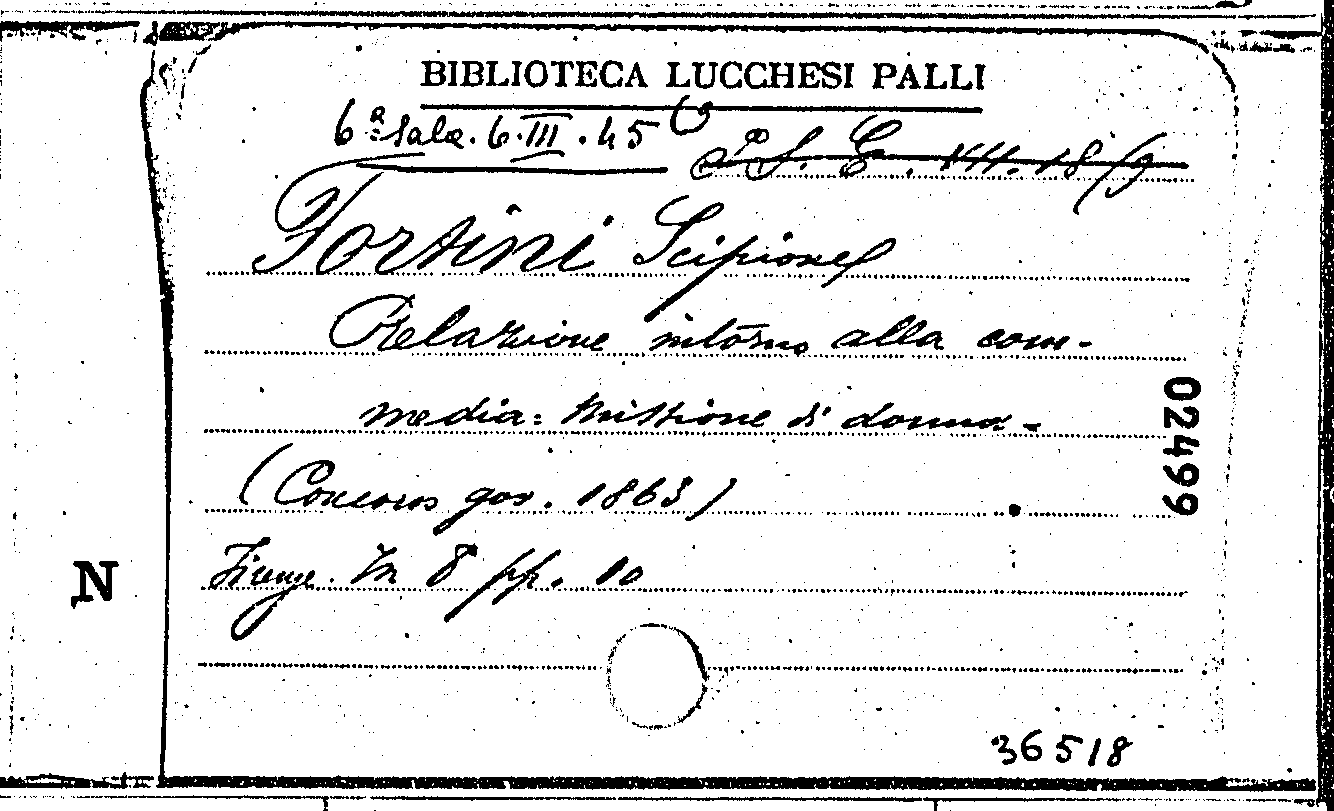 BIBLIOTECA LUCCHESI PALLI
6ª sala. 6. III. 45 (9
S. E. VII. 18/9
Fortini Scipione
Relazione intorno alla com-
media: Missione di donna -
(Concorso gov. 1863)
Firenze. In 8º pp. 10
02499
N
36518